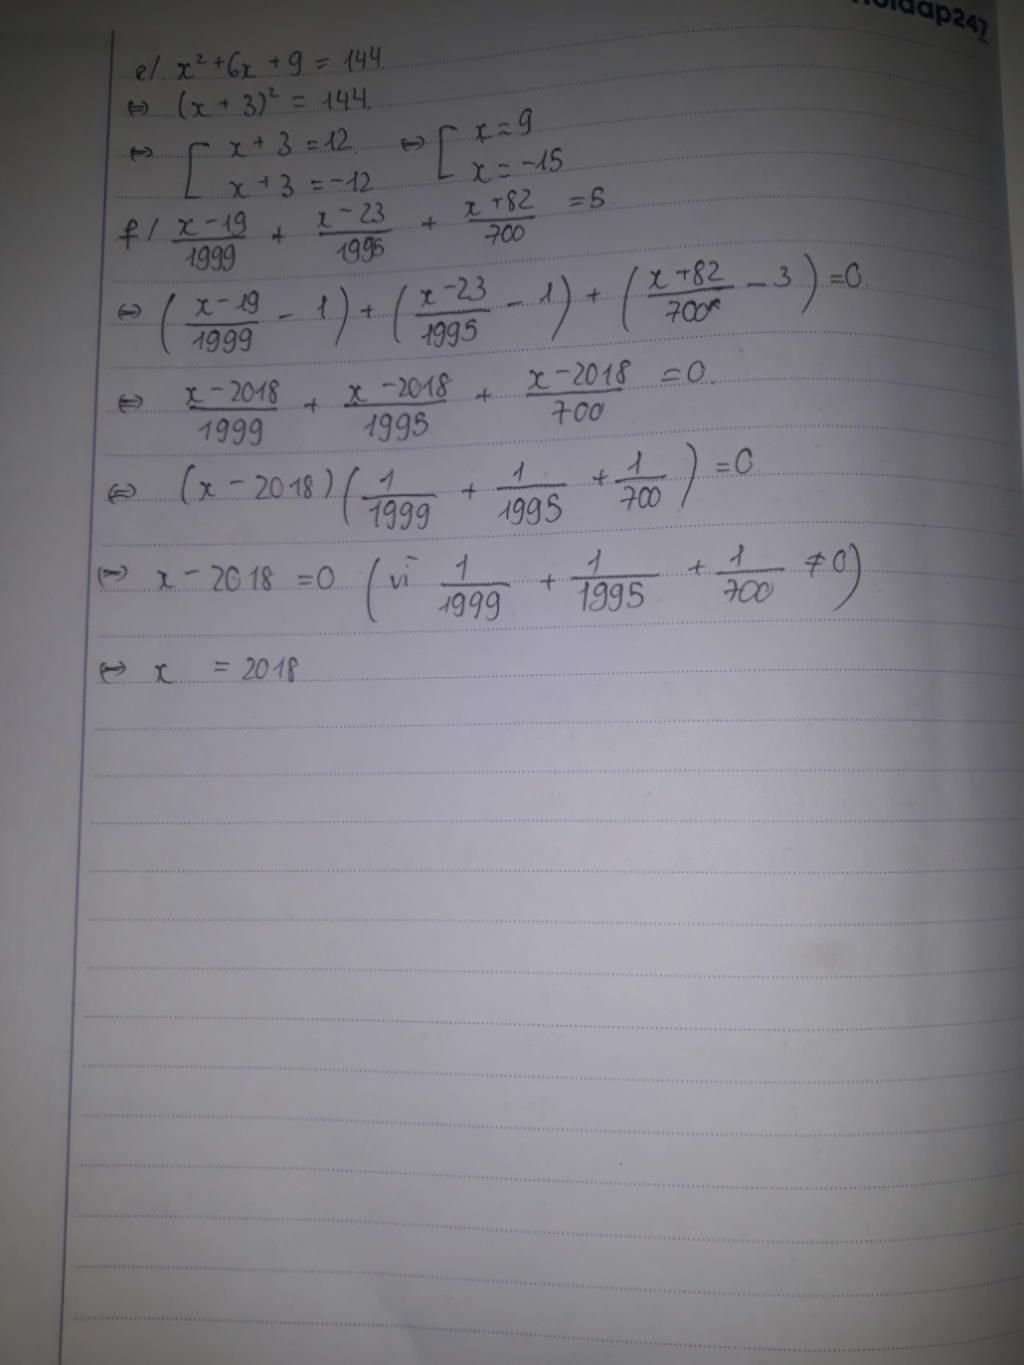 hoidap247
e/ x² + 6x + 9 = 144
⇔ (x + 3)² = 144
⇔ [ x + 3 = 12 ⇔ [ x = 9
x + 3 = -12 x = -15
f/ (x - 19)/1999 + (x - 23)/1995 + (x + 82)/700 = 5
⇔ ((x - 19)/1999 - 1) + ((x - 23)/1995 - 1) + ((x + 82)/700 - 3) = 0
⇔ (x - 2018)/1999 + (x - 2018)/1995 + (x - 2018)/700 = 0.
⇔ (x - 2018)(1/1999 + 1/1995 + 1/700) = 0
⇔ x - 2018 = 0 (vì 1/1999 + 1/1995 + 1/700 ≠ 0)
⇔ x = 2018